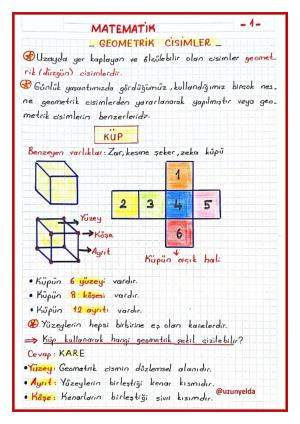 MATEMATİK
-1-
GEOMETRİK CİSİMLER
Uzayda yer kaplayan ve ölçülebilir olan cisimler geomet-
rik (düzgün) cisimlerdir.
Günlük yaşantımızda gördüğümüz, kullandığımız birçok nes-
ne geometrik cisimlerden yararlanarak yapılmıştır veya geo-
metrik cisimlerin benzerleridir.
KÜP
Benzeyen varlıklar: Zar, kesme şeker, zeka küpü
1
2 3 4 5
6
Yüzey
Köşe
Ayrıt
Küpün açık hali
• Küpün 6 yüzeyi vardır.
• Küpün 8 köşesi vardır.
• Küpün 12 ayrıtı vardır.
Yüzeylerin hepsi birbirine eş olan karelerdir.
⇒ Küp kullanarak hangi geometrik şekil çizilebilir?
Cevap: KARE
• Yüzey: Geometrik cismin düzlemsel alanıdır.
• Ayrıt: Yüzeylerin birleştiği kenar kısmıdır.
• Köşe: Kenarların birleştiği sivri kısımdır.
@uzunyelda